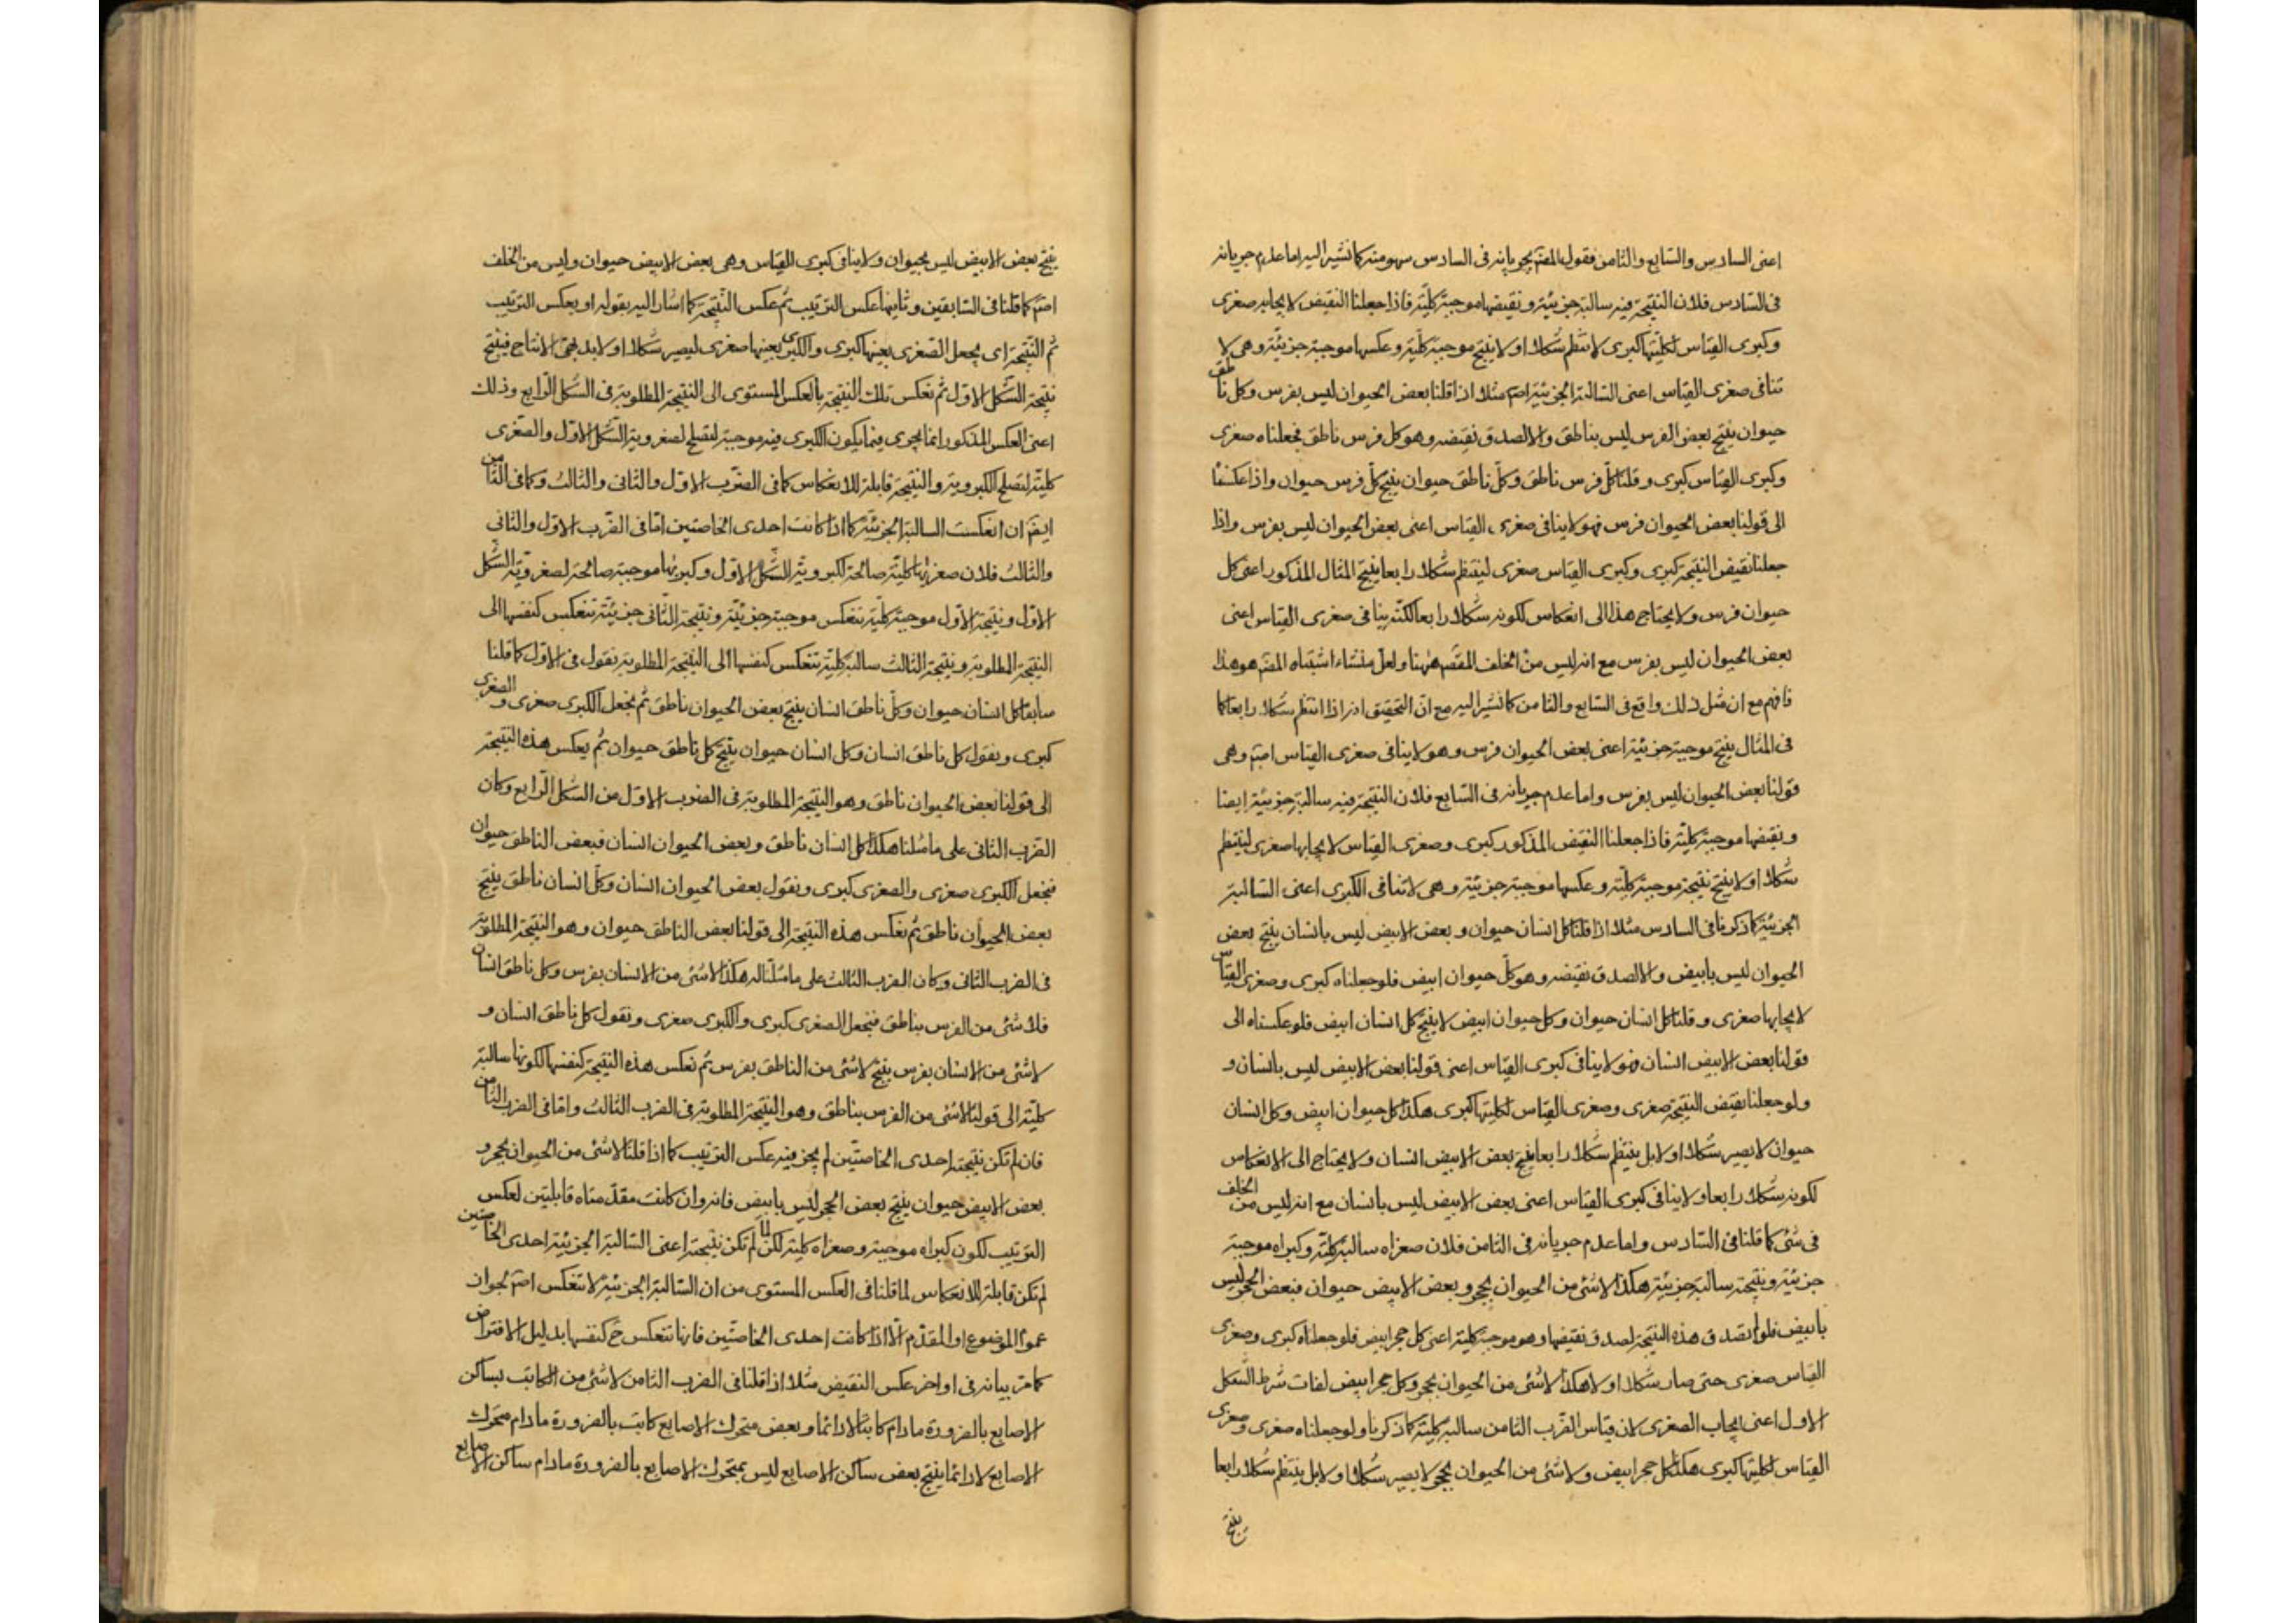 اعنى السادس والسابع والثامن فقول المصّ بجريانه فى السادس سهو منه كما نشير اليه اما عدم جريانه
فى السّادس فلان النتيجة فيه سالبة جزئية ونقيضها موجبة كليّة فاذا جعلنا النقيض لايجابه صغرى
وكبرى القياس لكليّتها كبرى لانتظم شكلا اولا ينتج موجبة كليّة وعكسها موجبة جزئيّة وهى لا
تنافى صغرى القياس اعنى السّالبة الجزئيّة اصم مثلا اذا قلنا بعض الحيوان ليس بفرس وكل ناطق
حيوان ينتج بعض الفرس ليس بناطق والا لصدق نقيضه وهو كل فرس ناطق فجعلناه صغرى
وكبرى القياس كبرى وقلنا كلّ فرس ناطق وكلّ ناطق حيوان ينتج كلّ فرس حيوان واذا عكسنا
الى قولنا بعض الحيوان فرس فهو لا ينافى صغرى القياس اعنى بعض الحيوان ليس بفرس واذا
جعلنا نقيض النتيجة كبرى وكبرى القياس صغرى لينتظم شكلا رابعا ينتج المثال المذكور اعنى كل
حيوان فرس ولا يحتاج هذا الى انعكاس لكونه شكلا رابعا لكنّه ينافى صغرى القياس اعنى
بعض الحيوان ليس بفرس مع انه ليس من الخلف المفسّر ههنا ولعل منشاء اشتباه المصّ هو هذا
فافهم مع ان مثل ذلك واقع فى السّابع والثامن كما نشير اليه مع انّ التحقيق انه اذا انتظم شكلا رابعا كما
فى المثال ينتج موجبة جزئيّة اعنى بعض الحيوان فرس وهو لا ينافى صغرى القياس اصم وهى
قولنا بعض الحيوان ليس بفرس واما عدم جريانه فى السّابع فلان النتيجة فيه سالبة جزئيّة ايضا
ونقيضها موجبة كليّة فاذا جعلنا النقيض المذكور كبرى وصغرى القياس لايجابها صغرى لينتظم
شكلا اولا ينتج نتيجة موجبة كليّة وعكسها موجبة جزئيّة وهى لا تنافى الكبرى اعنى السّالبة
الجزئيّة كما ذكرنا فى السادس مثلا اذا قلنا كل انسان حيوان وبعض الابيض ليس بانسان ينتج بعض
الحيوان ليس بابيض والا لصدق نقيضه وهو كلّ حيوان ابيض فلو جعلناه كبرى وصغرى القياس
لايجابها صغرى وقلنا كل انسان حيوان وكل حيوان ابيض لا ينتج كل انسان ابيض فلو عكسناه الى
قولنا بعض الابيض انسان فهو لا ينافى كبرى القياس اعنى قولنا بعض الابيض ليس بانسان و
ولو جعلنا نقيض النتيجة صغرى وصغرى القياس لكليتها كبرى هكذا كل حيوان ابيض وكل انسان
حيوان لا يصير شكلا اولا بل ينتظم شكلا رابعا ينتج بعض الابيض انسان ولا يحتاج الى الانعكاس
لكونه شكلا رابعا ولا ينافى كبرى القياس اعنى بعض الابيض ليس بانسان مع انه ليس من الخلف
فى شئ كما قلنا فى السّادس واما عدم جريانه فى الثامن فلان صغراه سالبة كليّة وكبراه موجبة
جزئيّة ونتيجته سالبة جزئيّة هكذا لا شئ من الحيوان بحجر وبعض الابيض حيوان فبعض الحجر ليس
بابيض فلو لم تصدق هذه النتيجة لصدق نقيضها وهو موجبة كليّة اعنى كل حجر ابيض فلو جعلناه كبرى وصغرى
القياس صغرى حتى صار شكلا اولا هكذا لا شئ من الحيوان بحجر وكل حجر ابيض لفات شرط الشّكل
الاول اعنى ايجاب الصغرى لان قياس الضّرب الثامن سالبة كليّة كما ذكرنا ولو جعلناه صغرى وصغرى
القياس لكليتها كبرى هكذا كل حجر ابيض ولا شئ من الحيوان بحجر لا يصير شكلا اولا بل ينتظم شكلا رابعا
ينتج
ينتج بعض الابيض ليس بحيوان ولا ينافى كبرى القياس وهى بعض الابيض حيوان وليس من الخلف
اصم كما قلنا فى السّابقين وثانيها عكس الترتيب ثم عكس النتيجة كما اشار اليه بقوله او بعكس الترتيب
ثم النتيجة اى يجعل الصّغرى بعينها كبرى والكبرى بعينها صغرى ليصير شكلا اولا بديهىّ الانتاج فينتج
نتيجة الشّكل الاوّل ثم تعكس تلك النتيجة بالعكس المستوى الى النتيجة المطلوبة فى الشكل الرّابع وذلك
اعنى العكس المذكور انما يجرى فيما يكون الكبرى فيه موجبة لتصلح لصغروية الشّكل الاوّل والصّغرى
كليّة لتصلح الكبروية والنتيجة قابلة للانعكاس كما فى الضّرب الاوّل والثانى والثالث وكما فى الثامن
ايضا ان انعكست السالبة الجزئيّة كما اذا كانت احدى الخاصتين امّا فى الضّرب الاوّل والثانى
والثالث فلان صغراها كليّة صالحة لكبرويّة الشّكل الاوّل وكبريها موجبة صالحة لصغرويّة الشّكل
الاوّل ونتيجة الاوّل موجبة كليّة تنعكس موجبة جزئيّة ونتيجة الثّانى جزئيّة تنعكس كنفسها الى
النتيجة المطلوبة ونتيجة الثالث سالبة كليّة تنعكس كنفسها الى النتيجة المطلوبة نقول فى الاوّل كما قلنا
سابقا كل انسان حيوان وكلّ ناطق انسان ينتج بعض الحيوان ناطق ثم نجعل الكبرى صغرى والصغرى
كبرى ونقول كل ناطق انسان وكل انسان حيوان ينتج كل ناطق حيوان ثم يعكس هذه النتيجة
الى قولنا بعض الحيوان ناطق وهو النتيجة المطلوبة فى الضرب الاوّل من الشكل الرّابع وكان
الضّرب الثانى على ما مثلنا هكذا كل انسان ناطق وبعض الحيوان انسان فبعض الناطق حيوان
فنجعل الكبرى صغرى والصغرى كبرى ونقول بعض الحيوان انسان وكلّ انسان ناطق ينتج
بعض الحيوان ناطق ثم نعكس هذه النتيجة الى قولنا بعض الناطق حيوان وهو النتيجة المطلوبة
فى الضرب الثانى وكان الضرب الثالث على ما مثّلنا له هكذا لا شئ من الانسان بفرس وكل ناطق انسان
فلا شئ من الفرس بناطق فنجعل الصغرى كبرى والكبرى صغرى ونقول كل ناطق انسان و
لا شئ من الانسان بفرس ينتج لا شئ من الناطق بفرس ثم نعكس هذه النتيجة كنفسها لكونها سالبة
كليّة الى قولنا لا شئ من الفرس بناطق وهو النتيجة المطلوبة فى الضرب الثالث وامّا فى الضرب الثامن
فان لم تكن نتيجته احدى الخاصتين لم يجز فيه عكس الترتيب كما اذا قلنا لا شئ من الحيوان بحجر و
بعض الابيض حيوان ينتج بعض الحجر ليس بابيض فانه وان كانت مقدّمتاه قابلتين لعكس
الترتيب لكون كبراه موجبة وصغراه كلية لكن لمّا لم تكن نتيجته اعنى السّالبة الجزئية احدى الخاصتين
لم تكن قابلة للانعكاس لما قلنا فى العكس المستوى من ان السّالبة الجزئيّة لا تنعكس اصم لجواز
عموم الموضوع او المقدّم الّا اذا كانت احدى الخاصّتين فانها تنعكس ح كنفسها بدليل الافتراض
كما مر بيانه فى اواخر عكس النقيض مثلا اذا قلنا فى الضرب الثامن لا شئ من الكاتب بساكن
الاصابع بالضرورة ما دام كاتبا لا دائما وبعض متحرك الاصابع كاتب بالضرورة ما دام متحرك
الاصابع لا دائما ينتج بعض ساكن الاصابع ليس بمتحرك الاصابع بالضرورة ما دام ساكن الاصابع